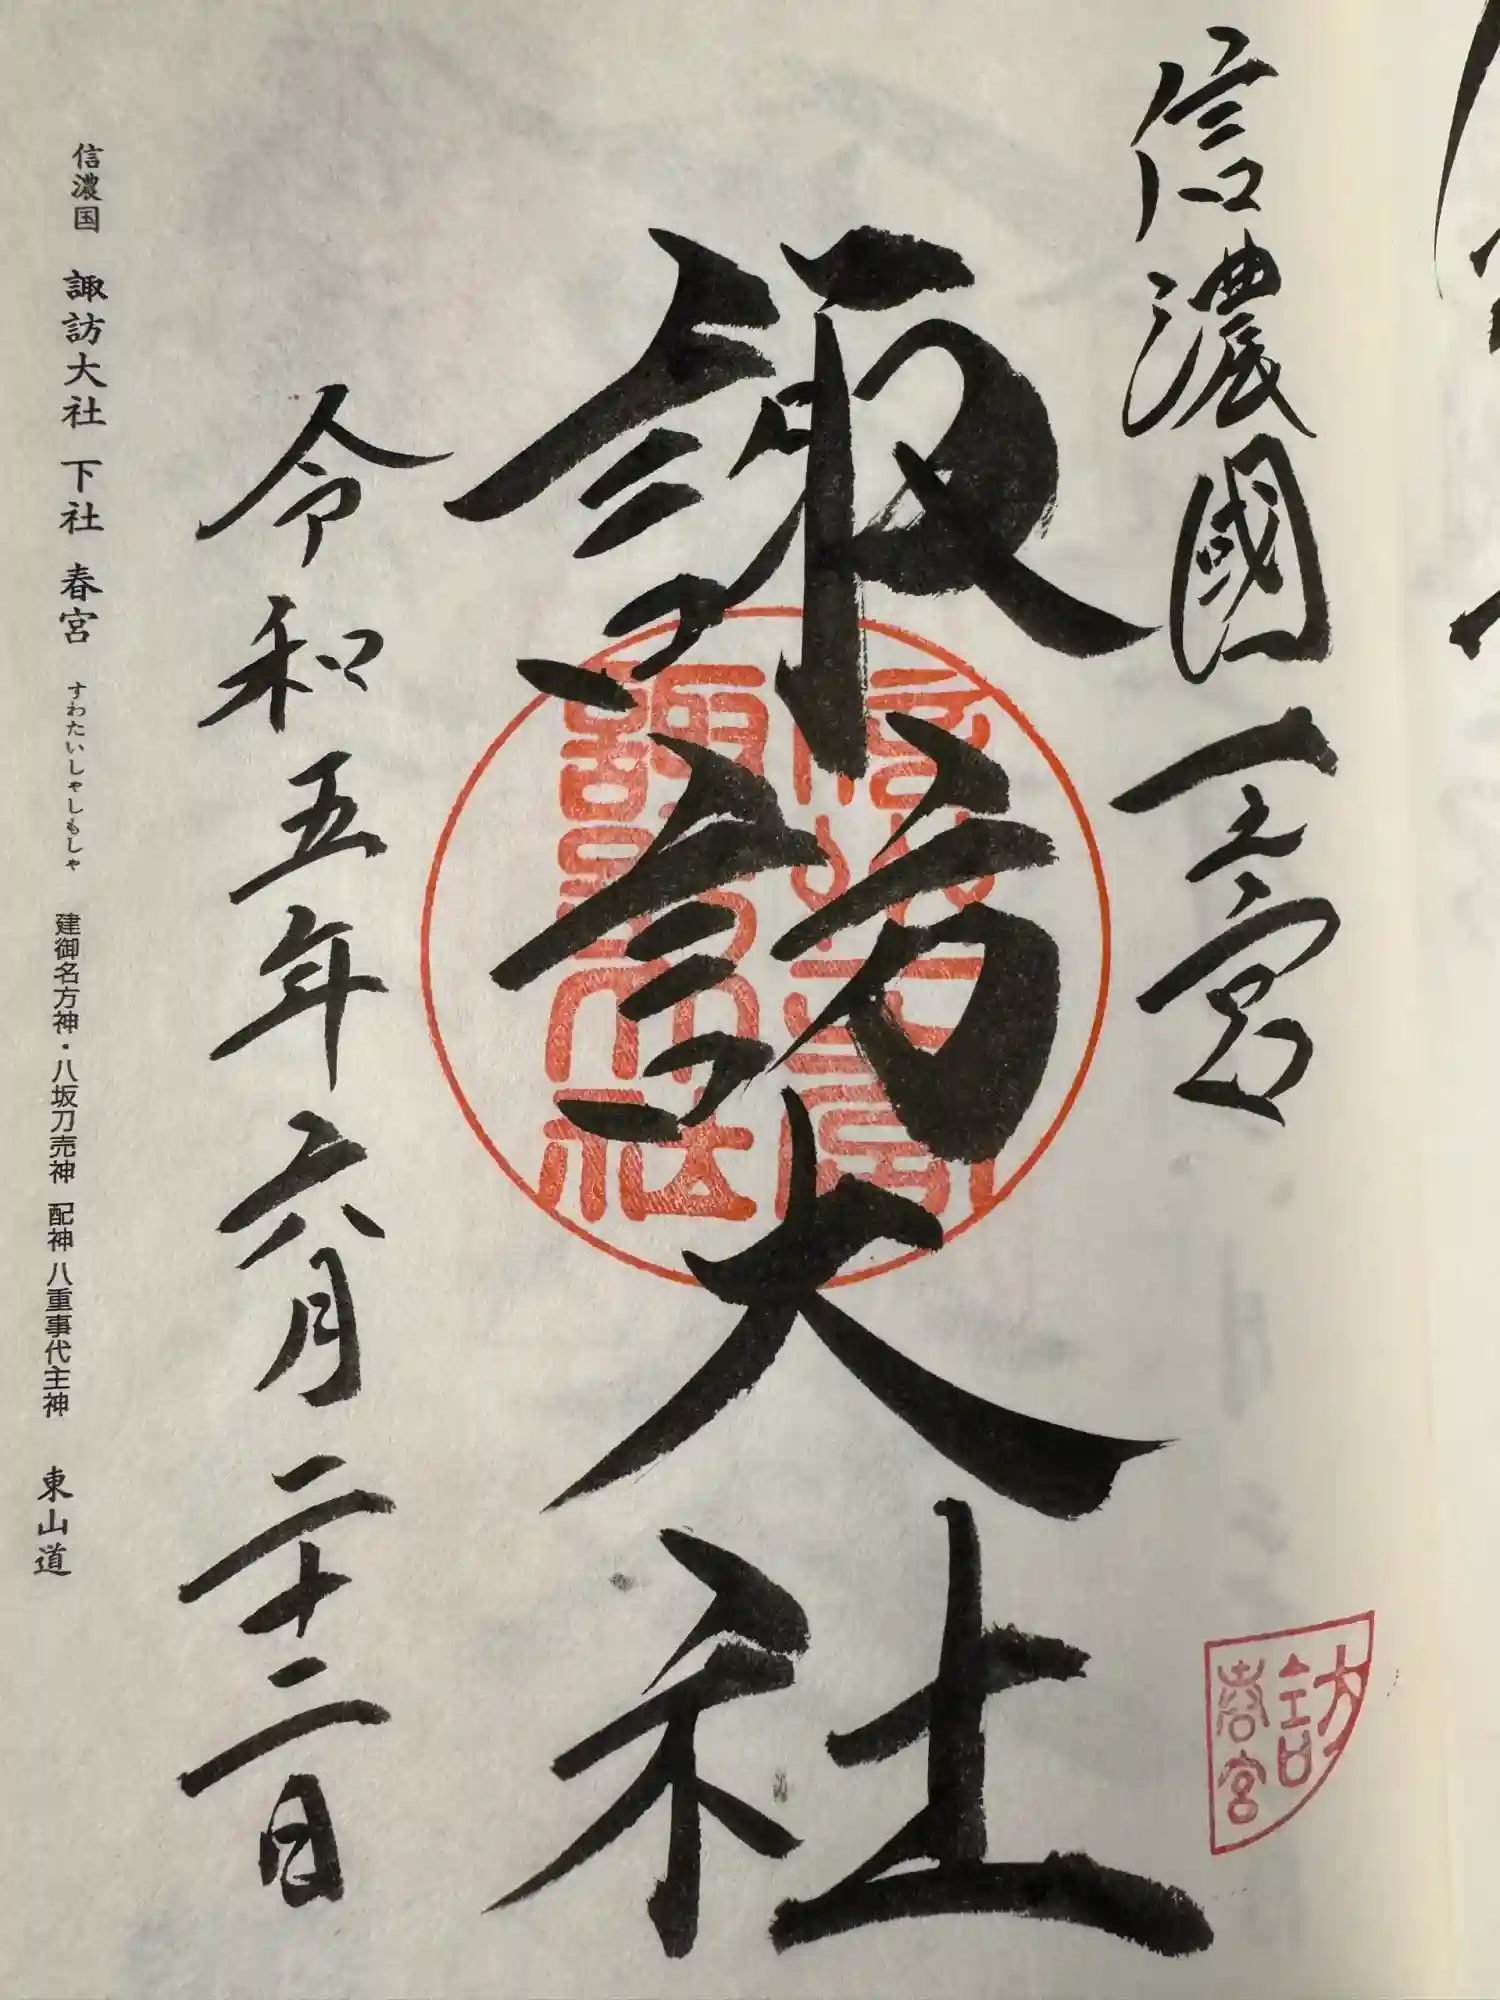 信濃國一之宮
諏訪大社
令和五年六月二十二日
信濃国 諏訪大社 下社 春宮 すわたいしゃしもしゃ 建御名方神・八坂刀売神 配神 八重事代主神 東山道
諏訪大社
訪
春宮